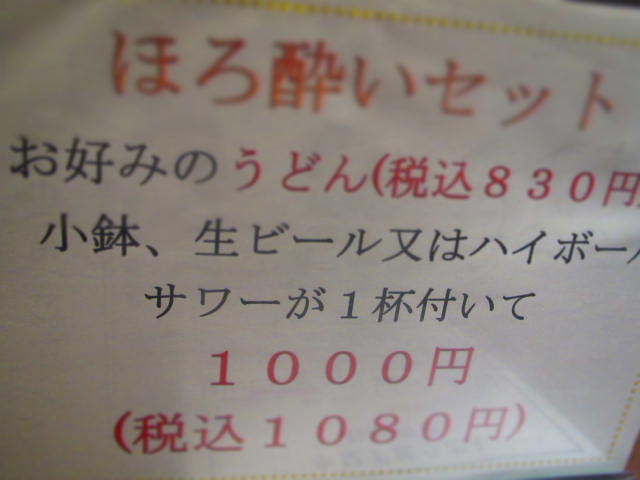 ほろ酔いセット
お好みのうどん(税込８３０円
小鉢、生ビール又はハイボール
サワーが１杯付いて
１０００円
(税込１０８０円)